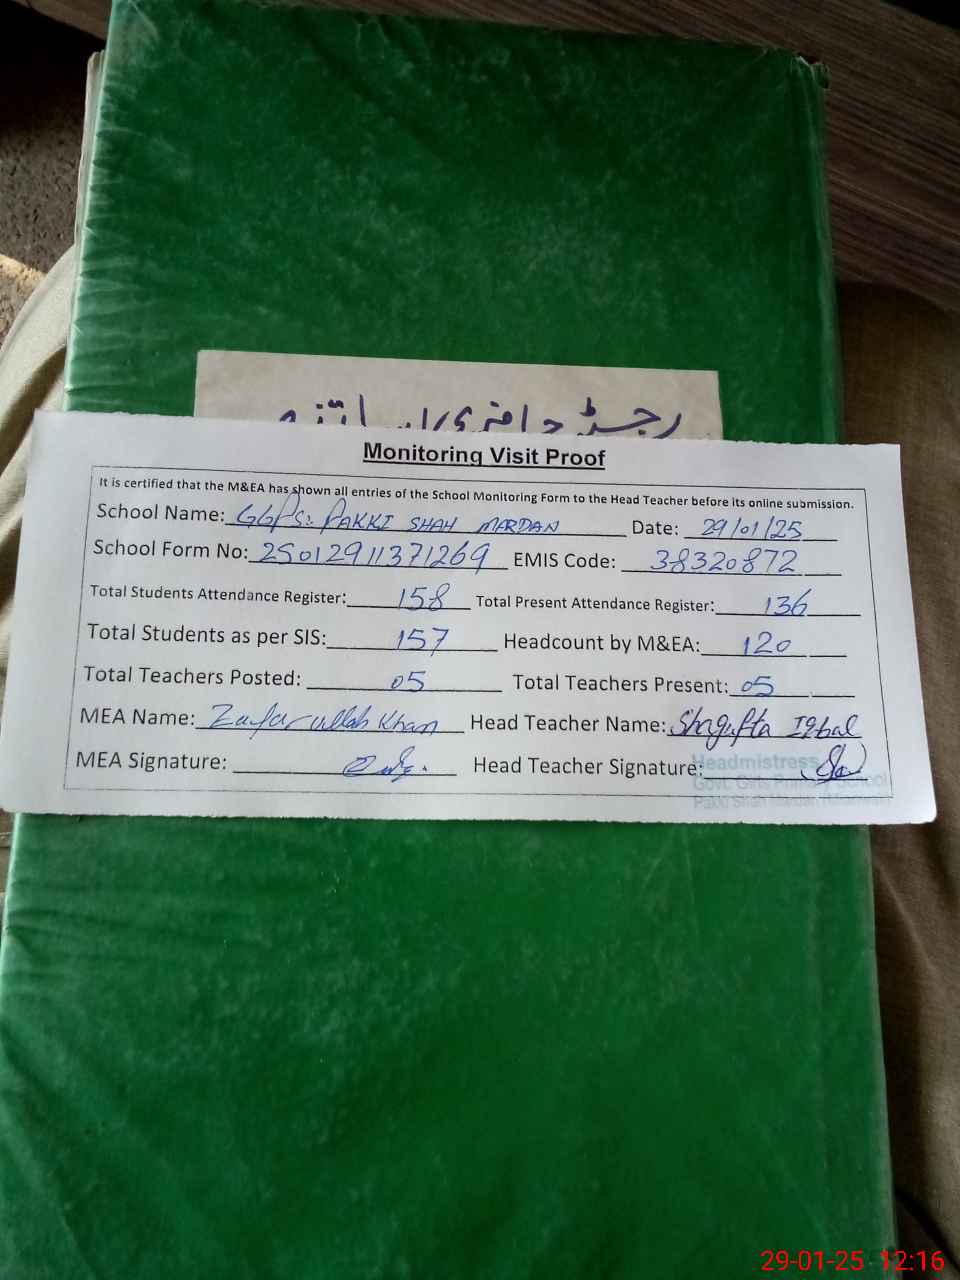 رجسٹر حاضری اساتذہ
Monitoring Visit Proof
It is certified that the M&EA has shown all entries of the School Monitoring Form to the Head Teacher before its online submission.
School Name: GGPS: PAKKI SHAH MARDAN Date: 29/01/25
School Form No: 25012911371269 EMIS Code: 38320872
Total Students Attendance Register: 158 Total Present Attendance Register: 136
Total Students as per SIS: 157 Headcount by M&EA: 120
Total Teachers Posted: 05 Total Teachers Present: 05
MEA Name: Zafarullah Khan Head Teacher Name: Shagufta Iqbal
MEA Signature: Head Teacher Signature:
Headmistress
Govt. Girls Primary School
Pakki Shah Mardan
29-01-25 12:16